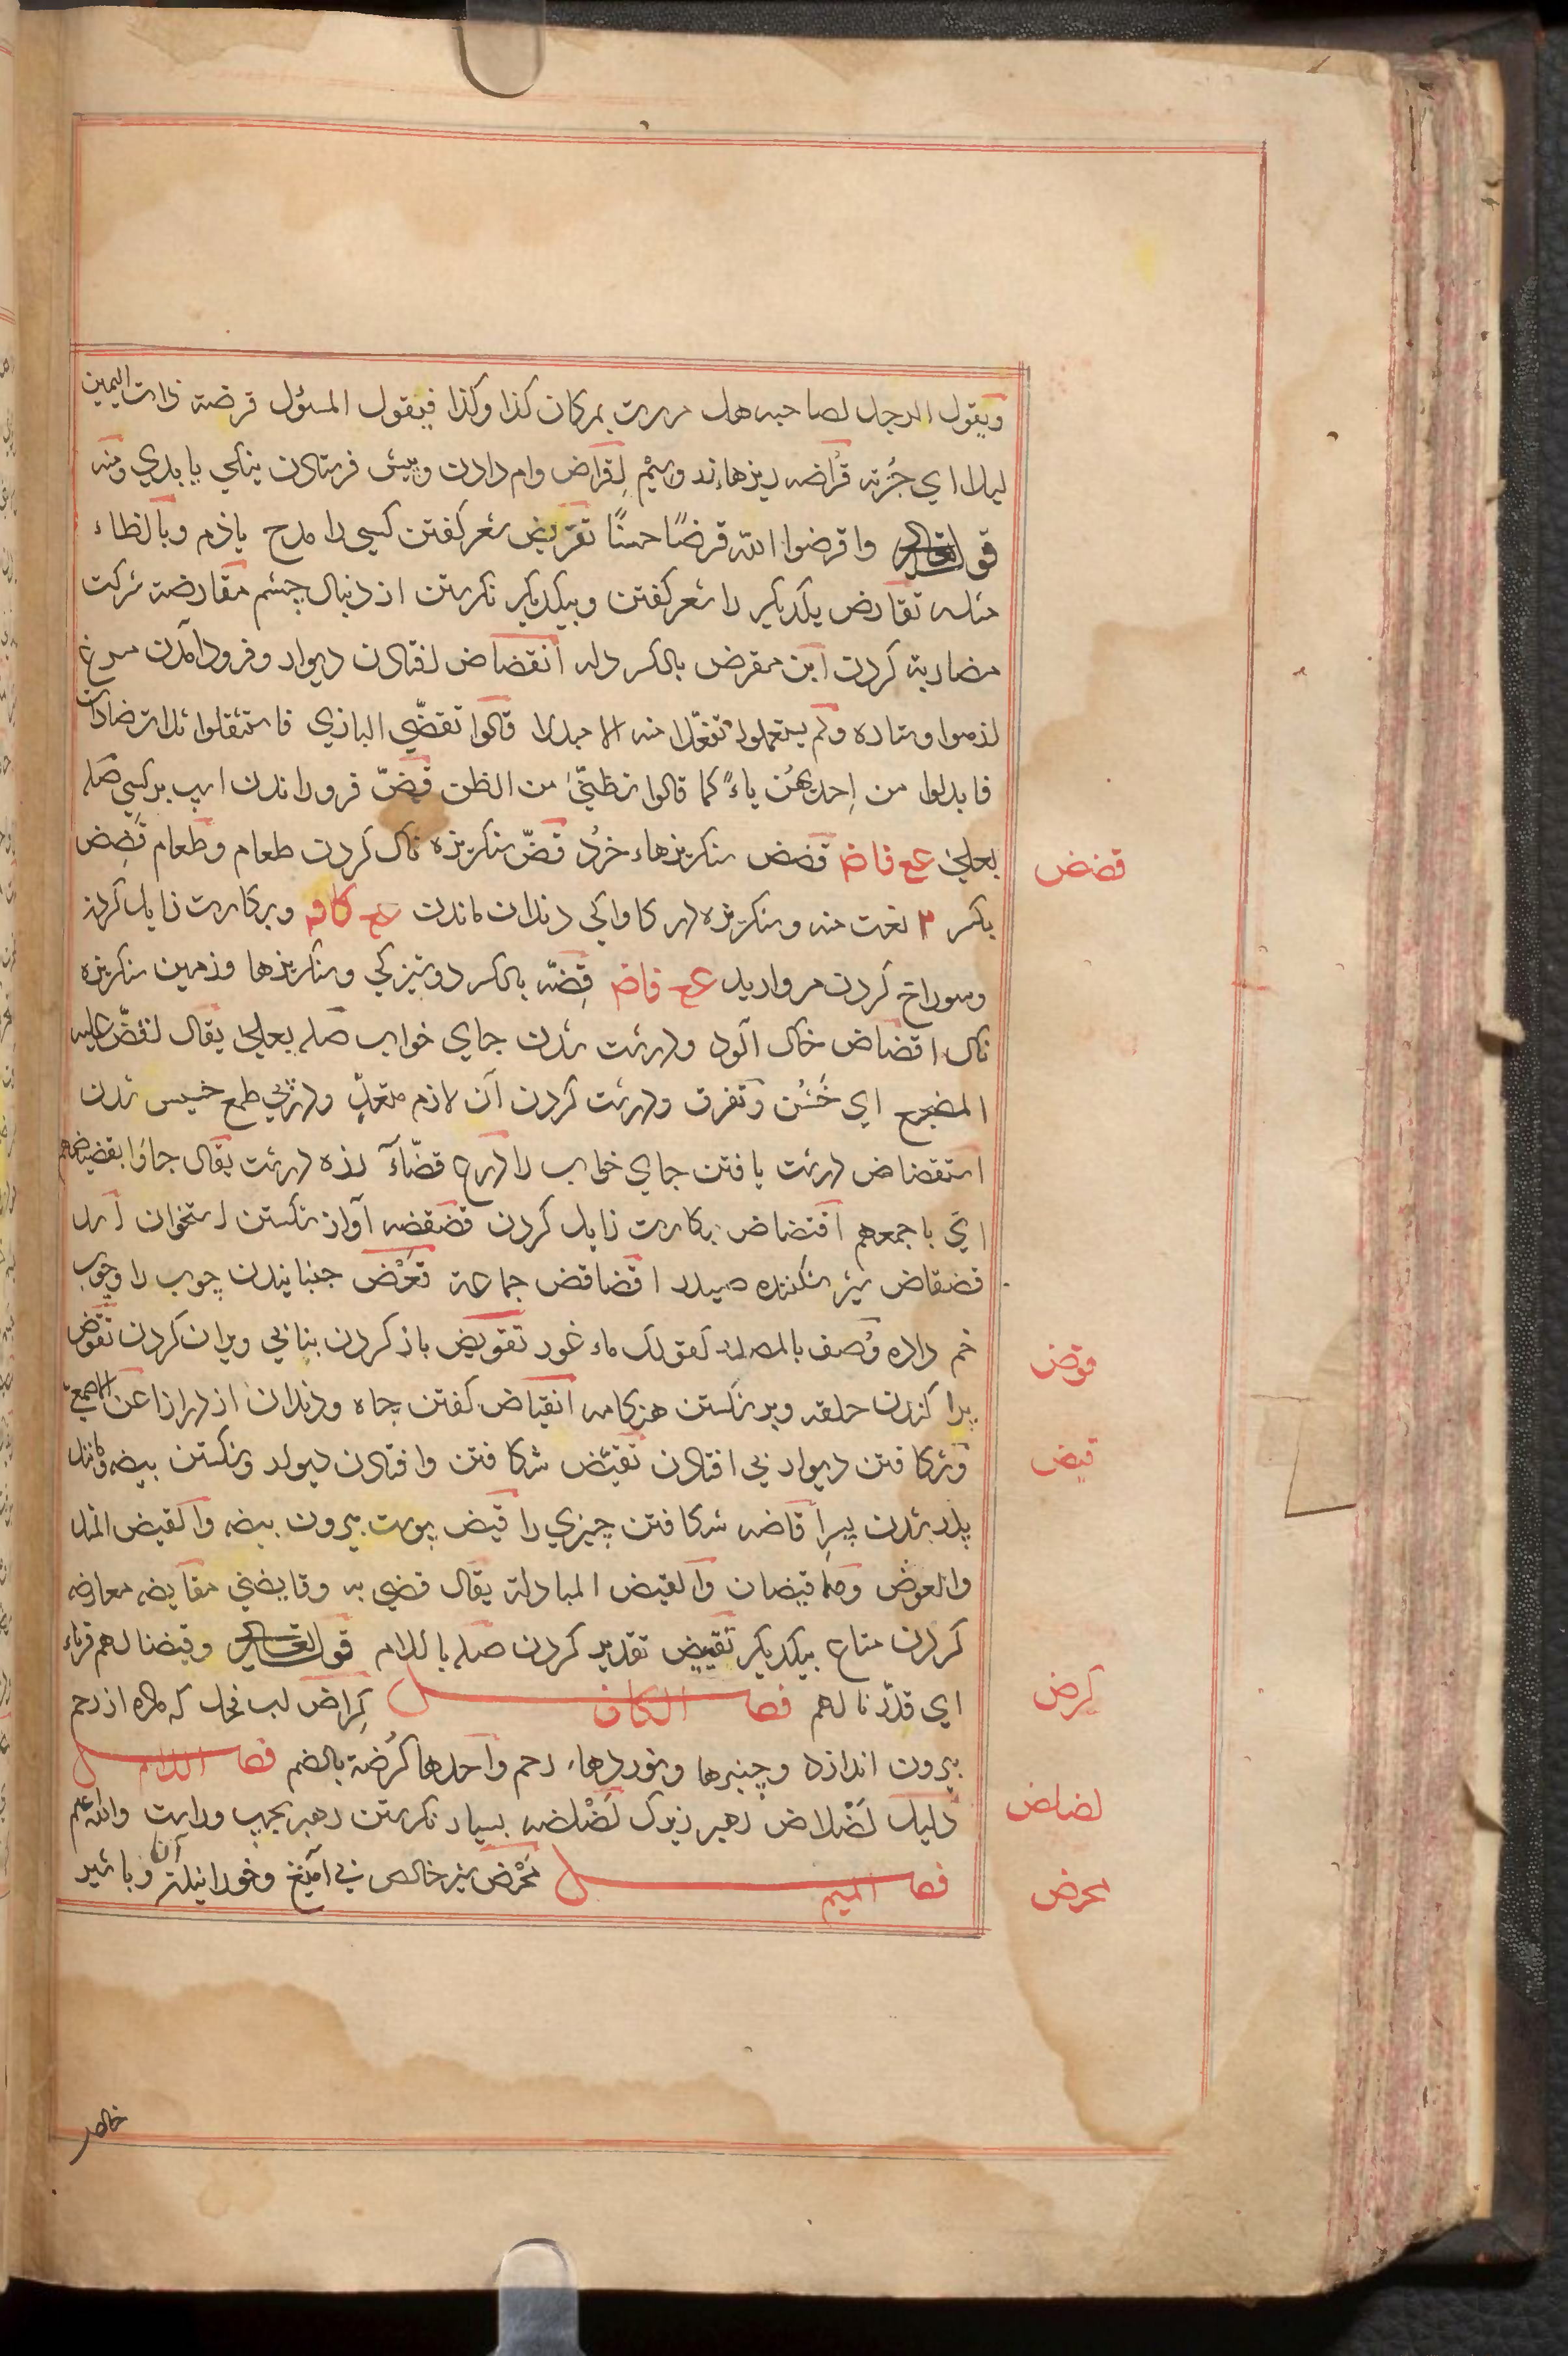 ويقول الرجل لصاحبه هل مررت بمكان كذا وكذا فيقول المسؤل قرضته ذات اليمين
ليلا اي جُزته قُراضه ريزهاء زر وسيم اِقراض وام دادن وپيش فرستادن نيكي يا بدي ومنه
قوله تعالي واقرضوا الله قرضًا حسنًا تقريض شعر گفتن كسي را مدح يا ذم وبالظاء
مثله تقارض يكديگر را شعر گفتن وبيكديگر نگرستن از دنبال چشم مقارضة شركت
مضاربة كردن ابن مقرض بالكسر دله انقضاض افتادن ديوار وفرود آمدن مرغ
از هوا وستاره ولم يستعملوا تفعّلا منه الا مبدلا قالوا تقضّي البازي فاستثقلوا ثلاث ضادات
فابدلوا من اِحديهنّ ياءً كما قالوا تظنّي من الظن قضّ فرود راندن اسپ بر كسي صله
بعلي ع فاض قضض سنگريزهاء خرُد قضّ سنگريزه ناك كردن طعام وطعام قَضِض
بكسر ٢ نعت منه وسنگريزه در كاواكي دندان ماندن ع كاف وبكارت زايل كردن
وسوراخ كردن مرواريد ع فاض قِضّه بالكسر دوشيزگي وسنگريزها وزمين سنگريزه
ناك اقضاض خاك آلود ودرشت شدن جاي خواب صله بعلي يقال اقضّ عليه
المضجع اي خَشُن وتفرق ودرشت كردن آن لازم متعدٍّ ودر پي طمع خسيس شدن
استقضاض درشت يافتن جاي خواب را درع قضّاء زره درشت يقال جاؤا بقضيضهم
اي باجمعهم اقتضاض بكارت زايل كردن قضقضه آواز شكستن استخوان اسد
قضقاض شير شكننده صيد را قضاقض جماعة قَعْض جنبانيدن چوب را وچوب
خم داده وُصف بالمصدر كقولك ماء غور تقويض باز كردن بنا بي ويران كردن تقوّض
پراكندن حلقه وبر شكستن هنگامه انقياض كفتن چاه ودندان از درازا عن الاصمعي
وشكافتن ديوار بي افتادن تقيّض شكافتن وافتادن ديوار وشكستن بيضه ومانند
پدر شدن پسر قاضه شكافتن چيزي را قيض پوست بيرون بيضه والقيض المثل
والعوض وهما قيضان والقيض المبادلة يقال قضي به وقايضني مقايضه معاوضه
كردن متاع بيكديگر تقييض تقدير كردن صله باللام قوله تعالي وقيضنا لهم قرناء
اي قدّرنا لهم فصل الكاف كِراض لب فحل كه ماده از رحم
بيرون اندازد وچنبرها ونوردهاء رحم واحدها كُرضة بالضم فصل اللام
دليل لَضْلاض رهبر زيرك لَضْلضه بسيار نگرستن رهبر بچپ وراست والله اعلم
فصل الميم مَحْض شير خالص بي آميغ وخورانيدن آن وباشير
قضض
قوض
قيض
كرض
لضلض
محض
خالص